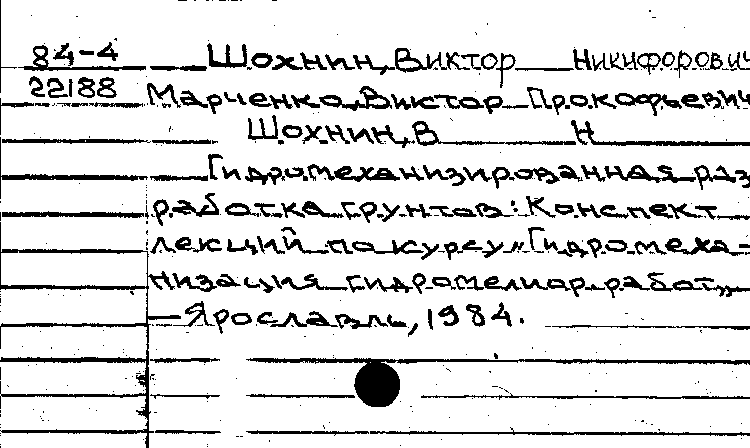 84-4 Шохнин, Виктор Никифорович
22188 Марченко, Виктор Прокофьевич
Шохнин, В Н
Гидромеханизированная раз
работка грунтов: Конспект
лекций по курсу „Гидромеха-
низация гидромелиор. работ„
— Ярославль, 1984.